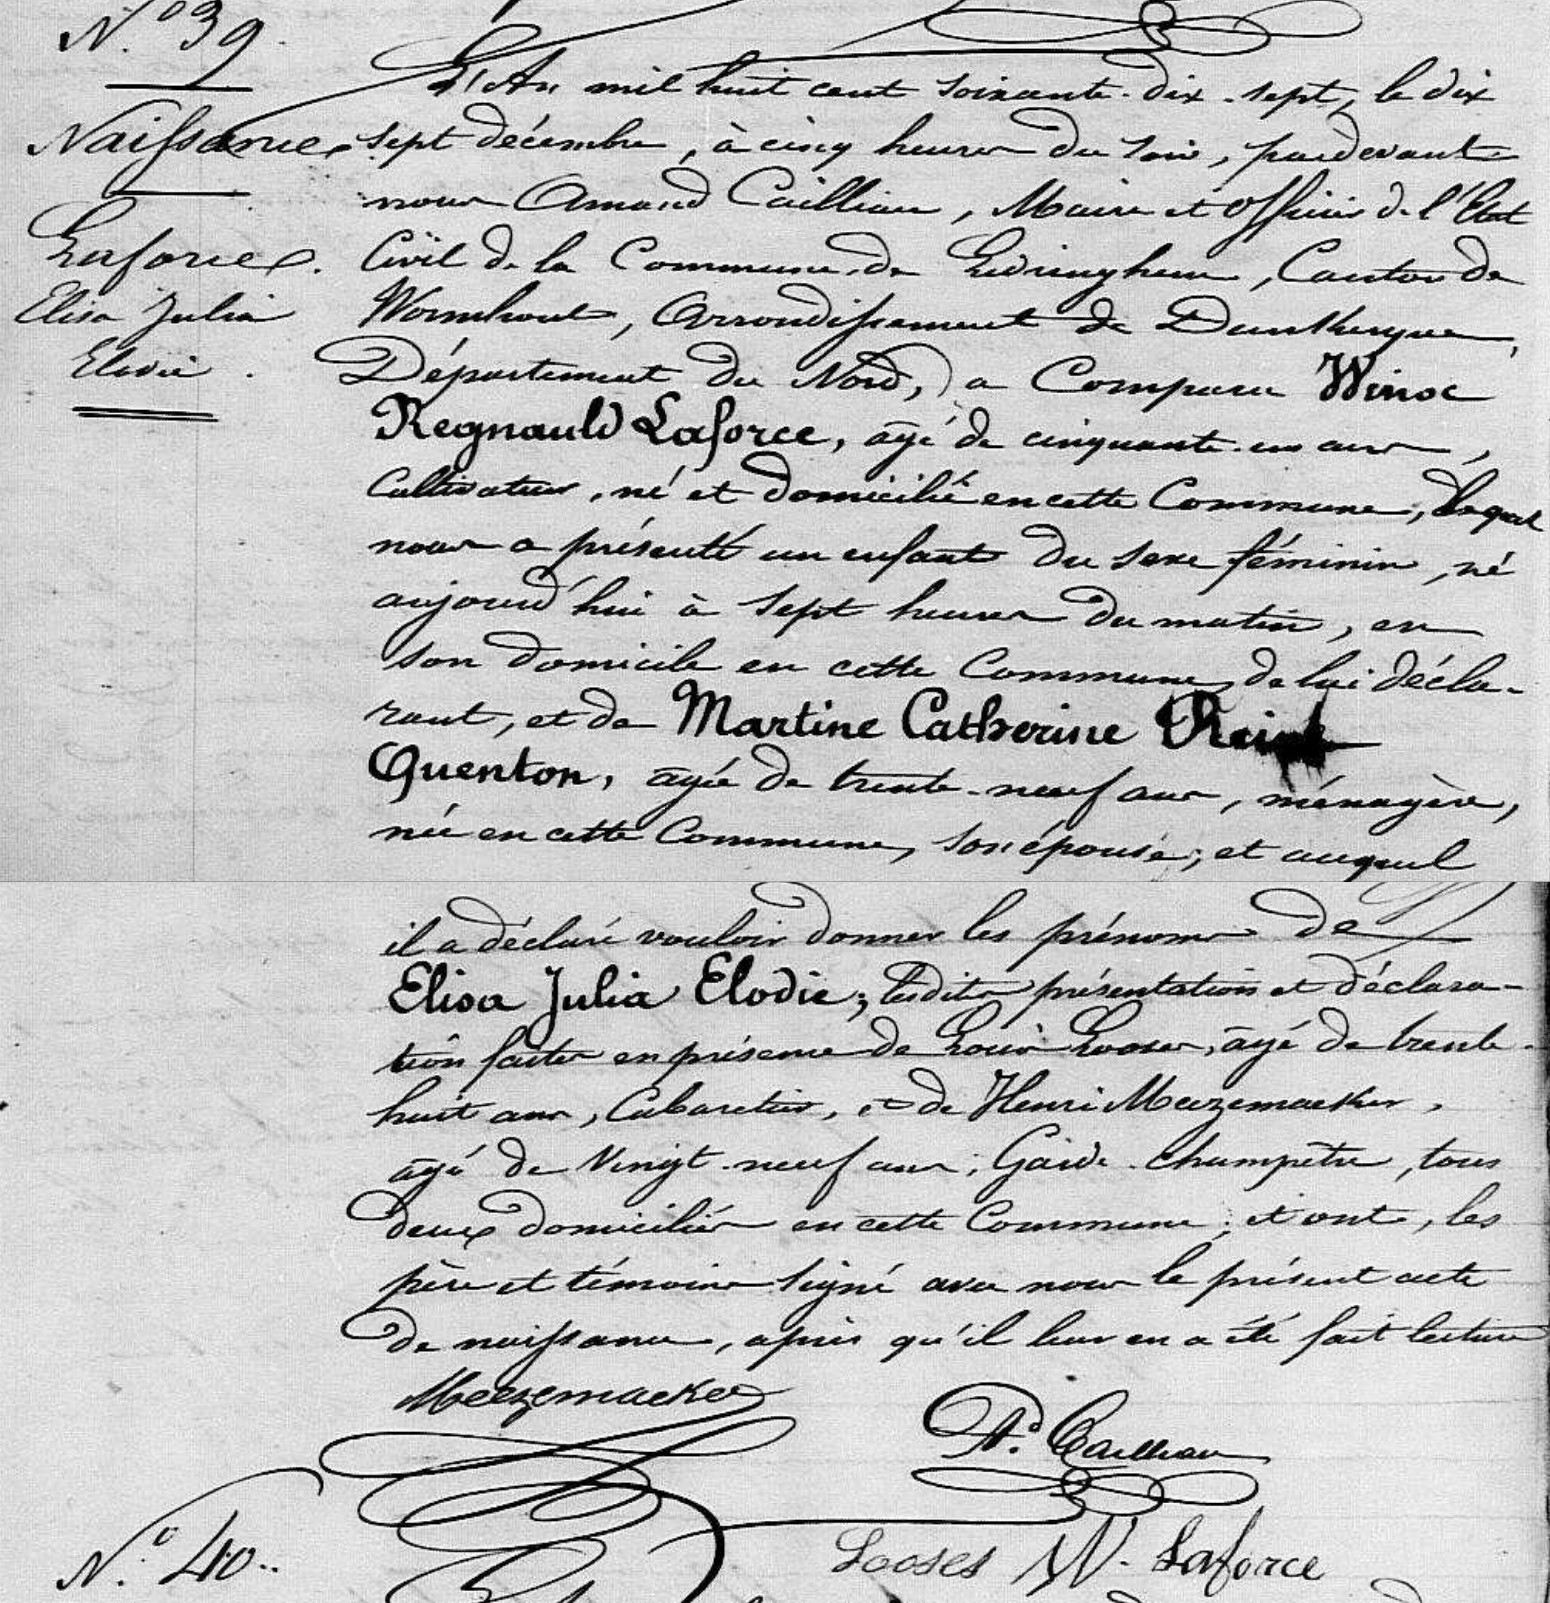 N.º 39.
Naissance.
Laforce.
Elisa Julia
Elodie.
L'An mil huit cent soixante-dix-sept, le dix
sept décembre, à cinq heures du soir, pardevant
nous Amand Cailliau, Maire et officier de l'Etat
Civil de la Commune de Ledringhem, Canton de
Wormhout, Arrondissement de Dunkerque,
Département du Nord, a Comparu Winoc
Regnauld Laforce, âgé de cinquante-un ans,
Cultivateur, né et domicilié en cette Commune, lequel
nous a présenté un enfant du sexe féminin, né
aujourd'hui à sept heures du matin, en
son domicile en cette Commune, de lui décla-
rant, et de Martine Catherine
Quenton, âgée de trente-neuf ans, ménagère,
née en cette Commune, son épouse; et auquel
il a déclaré vouloir donner les prénoms de
Elisa Julia Elodie; lesdites présentation et déclara-
tion faites en présence de Louis Looses, âgé de trente-
huit ans, Cabaretier, et de Henri Meezemaeker,
âgé de Vingt-neuf ans, Garde-champêtre, tous
deux domiciliés en cette Commune; et ont, les
père et témoins signé avec nous le présent acte
de naissance, après qu'il leur en a été fait lecture
Meezemaeker
Ad. Cailliau
Looses W. Laforce
N.º 40..